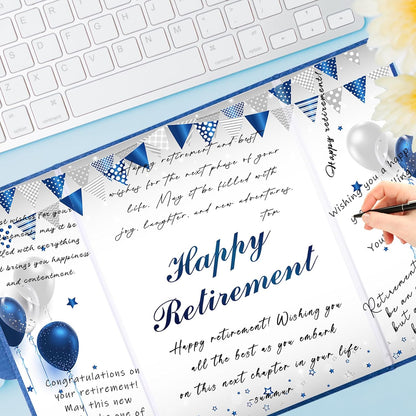 Happy retirement and best
wishes for the next phase of your
life. May it be filled with
joy, laughter, and new adventures.
Tom
Happy
Retirement
Happy retirement! Wishing you
all the best as you embark
on this next chapter in your life.
summur
wishes for your
retirement. may it be
filled with everything
it brings you happiness
and contentment.
Congratulations on
your retirement!
May this new
be one of
Happy retirement!
Wishing you a happy
Retirement
be an
but